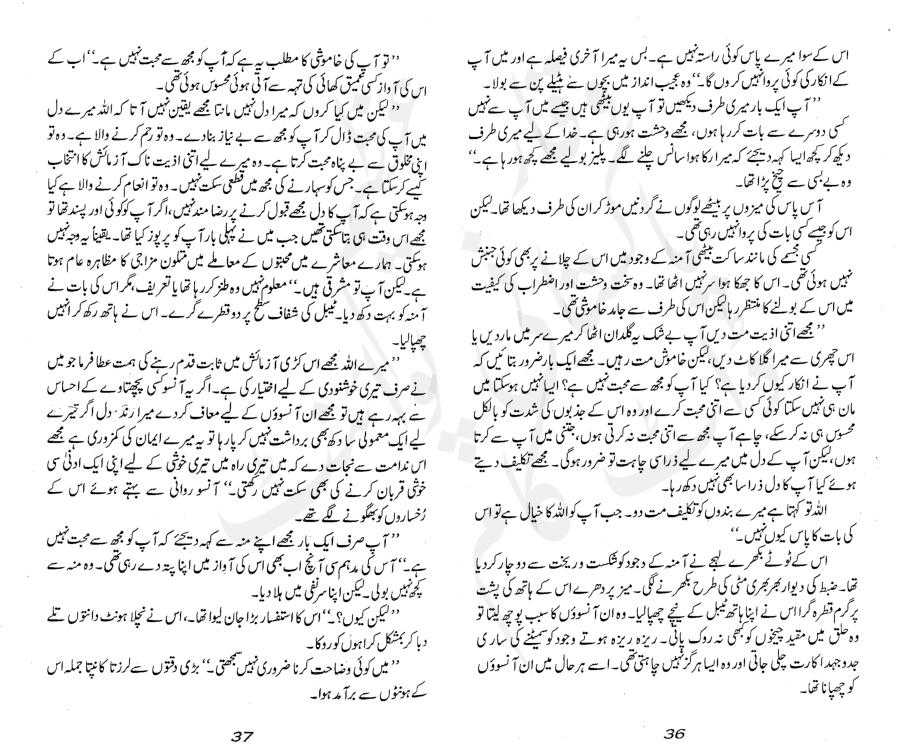 اس کے سوا میرے پاس کوئی راستہ نہیں ہے۔ بس یہ میرا آخری فیصلہ ہے اور میں آپ
کے انکار کی کوئی پروا نہیں کروں گا۔“ وہ عجیب انداز میں بچوں سے ہٹیلے پن سے بولا۔
”آپ ایک بار میری طرف دیکھیں تو آپ یوں بیٹھی ہیں جیسے میں آپ سے نہیں
کسی دوسرے سے بات کر رہا ہوں، مجھے وحشت ہو رہی ہے۔ خدا کے لیے میری طرف
دیکھ کر کچھ ایسا کہہ دیجئے کہ میرا رکا ہوا سانس چلنے لگے۔ پلیز بولیے مجھے کچھ ہو رہا ہے۔“
وہ بے بسی سے چیخ پڑا تھا۔
آس پاس کی میزوں پر بیٹھے لوگوں نے گردنیں موڑ کر ان کی طرف دیکھا تھا۔ لیکن
اس کو جیسے کسی بات کی پروا نہیں رہی تھی۔
کسی مجسمے کی مانند ساکت بیٹھی آمنہ کے وجود میں اس کے چلانے پر بھی کوئی جنبش
نہیں ہوئی تھی۔ اس کا جھکا ہوا سر نہیں اٹھا تھا۔ وہ سخت وحشت اور اضطراب کی کیفیت
میں اس کے بولنے کا منتظر رہا لیکن اس کی طرف سے جامد خاموشی تھی۔
”مجھے اتنی اذیت مت دیں آپ بے شک یہ گلدان اٹھا کر میرے سر میں مار دیں یا
اس چھری سے میرا گلا کاٹ دیں، لیکن خاموش مت رہیں۔ مجھے ایک بار ضرور بتائیں کہ
آپ نے انکار کیوں کر دیا ہے؟ کیا آپ کو مجھ سے محبت نہیں ہے؟ ایسا نہیں ہو سکتا میں
مان ہی نہیں سکتا کوئی کسی سے اتنی محبت کرے اور وہ اس کے جذبوں کی شدت کو بالکل
محسوس ہی نہ کر سکے، چاہے آپ مجھ سے اتنی محبت نہ کرتی ہوں، جتنی میں آپ سے کرتا
ہوں، لیکن آپ کے دل میں میرے لیے ذرا سی چاہت تو ضرور ہوگی۔ مجھے تکلیف دیتے
ہوئے کیا آپ کا دل ذرا سا بھی نہیں دکھ رہا۔
اللہ تو کہتا ہے میرے بندوں کو تکلیف مت دو۔ جب آپ کو اللہ کا خیال ہے تو اس
کی بات کا پاس کیوں نہیں۔“
اس کے ٹوٹے بکھرے لہجے نے آمنہ کے وجود کو شکست و ریخت سے دو چار کر دیا
تھا۔ ضبط کی دیوار بھربھری مٹی کی طرح بکھرنے لگی۔ میز پر دھرے اس کے ہاتھ کی پشت
پر گرم قطرہ گرا اس نے اپنا ہاتھ ٹیبل کے نیچے چھپا لیا۔ وہ ان آنسوؤں کا سبب پوچھ لیتا تو
وہ حلق میں مقید چیخوں کو بھی نہ روک پاتی۔ ریزہ ریزہ ہوتے وجود کو سمیٹنے کی ساری
جدوجہد اکارت چلی جاتی اور وہ ایسا ہرگز نہیں چاہتی تھی۔ اسے ہر حال میں ان آنسوؤں
کو چھپانا تھا۔
36
”تو آپ کی خاموشی کا مطلب یہ ہے کہ آپ کو مجھ سے محبت نہیں ہے۔“ اب کے
اس کی آواز کسی عمیق کھائی کی تہہ سے آتی ہوئی محسوس ہوئی تھی۔
”لیکن میں کیا کروں کہ میرا دل نہیں مانتا مجھے یقین نہیں آتا کہ اللہ میرے دل
میں آپ کی محبت ڈال کر آپ کو مجھ سے بے نیاز بنا دے۔ وہ تو رحم کرنے والا ہے۔ وہ تو
اپنی مخلوق سے بے پناہ محبت کرتا ہے۔ وہ میرے لیے اتنی اذیت ناک آزمائش کا انتخاب
کیسے کر سکتا ہے۔ جس کو سہارنے کی مجھ میں قطعی سکت نہیں۔ وہ تو انعام کرنے والا ہے کیا
وجہ ہو سکتی ہے کہ آپ کا دل مجھے قبول کرنے پر رضامند نہیں، اگر آپ کو کوئی اور پسند تھا تو
مجھے اس وقت ہی بتا سکتی تھیں جب میں نے پہلی بار آپ کو پرپوز کیا تھا۔ یقیناً یہ وجہ نہیں
ہو سکتی۔ ہمارے معاشرے میں محبتوں کے معاملے میں متلون مزاجی کا مظاہرہ عام ہوتا
ہے۔ لیکن آپ تو مشرقی ہیں۔“ معلوم نہیں وہ طنز کر رہا تھا یا تعریف، مگر اس کی بات نے
آمنہ کو بہت دکھ دیا۔ ٹیبل کی شفاف سطح پر دو قطرے گرے۔ اس نے ہاتھ رکھ کر انہیں
چھپا لیا۔
”میرے اللہ مجھے اس کڑی آزمائش میں ثابت قدم رہنے کی ہمت عطا فرما جو میں
نے صرف تیری خوشنودی کے لیے اختیار کی ہے۔ اگر یہ آنسو کسی پچھتاوے کے احساس
سے بہہ رہے ہیں تو مجھے ان آنسوؤں کے لیے معاف کر دے میرا دل اگر تیرے
لیے ایک معمولی سا دکھ بھی برداشت نہیں کر پا رہا تو یہ میرے ایمان کی کمزوری ہے مجھے
اس ندامت سے نجات دے کہ میں تیری راہ میں تیری خوشی کے لیے اپنی ایک ادنیٰ سی
خوشی قربان کرنے کی بھی سکت نہیں رکھتی۔“ آنسو روانی سے بہتے ہوئے اس کے
رُخساروں کو بھگونے لگے تھے۔
”آپ صرف ایک بار مجھے اپنے منہ سے کہہ دیجئے کہ آپ کو مجھ سے محبت نہیں
ہے۔“ آس کی مدہم سی آنچ اب بھی اس کی آواز میں اپنا پتہ دے رہی تھی۔ وہ منہ سے
کچھ نہیں بولی۔ لیکن اپنا سر نفی میں ہلا دیا۔
”لیکن کیوں؟۔“ اس کا استفسار بڑا جان لیوا تھا۔، اس نے نچلا ہونٹ دانتوں تلے
دبا کر بمشکل کراہوں کو روکا۔
”میں کوئی وضاحت کرنا ضروری نہیں سمجھتی۔“ بڑی دقتوں سے لرزتا کانپتا جملہ اس
کے ہونٹوں سے برآمد ہوا۔
37